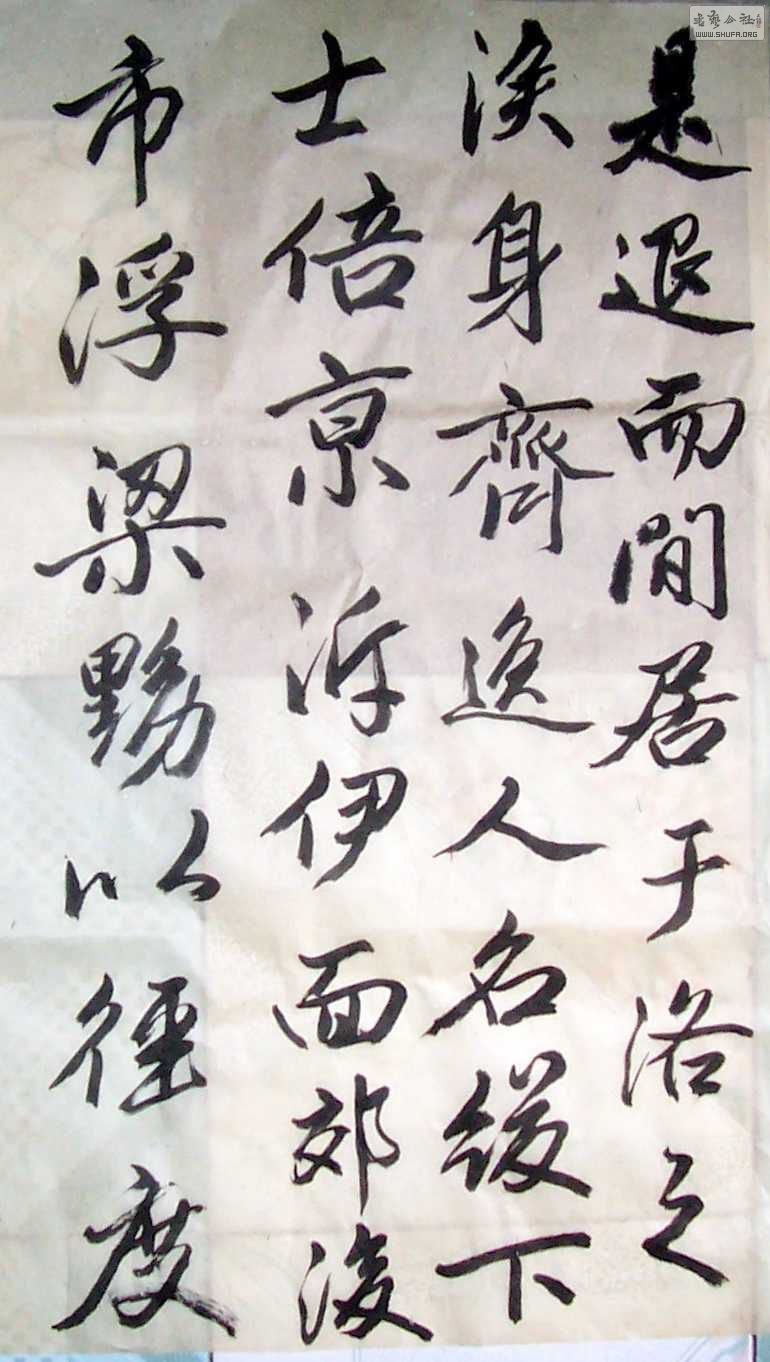 是退而間居于洛之
涘身齊逸人名綴下
士倍京泝伊面郊後
市浮梁黝以徑度
书艺公社
WWW.SHUFA.ORG